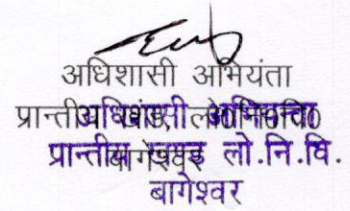 अधिशासी अभियंता
प्रान्तीय खण्ड, लो०नि०वि०
अधिशासी अभियन्ता
बागेश्वर
प्रान्तीय खण्ड लो.नि.वि.
बागेश्वर